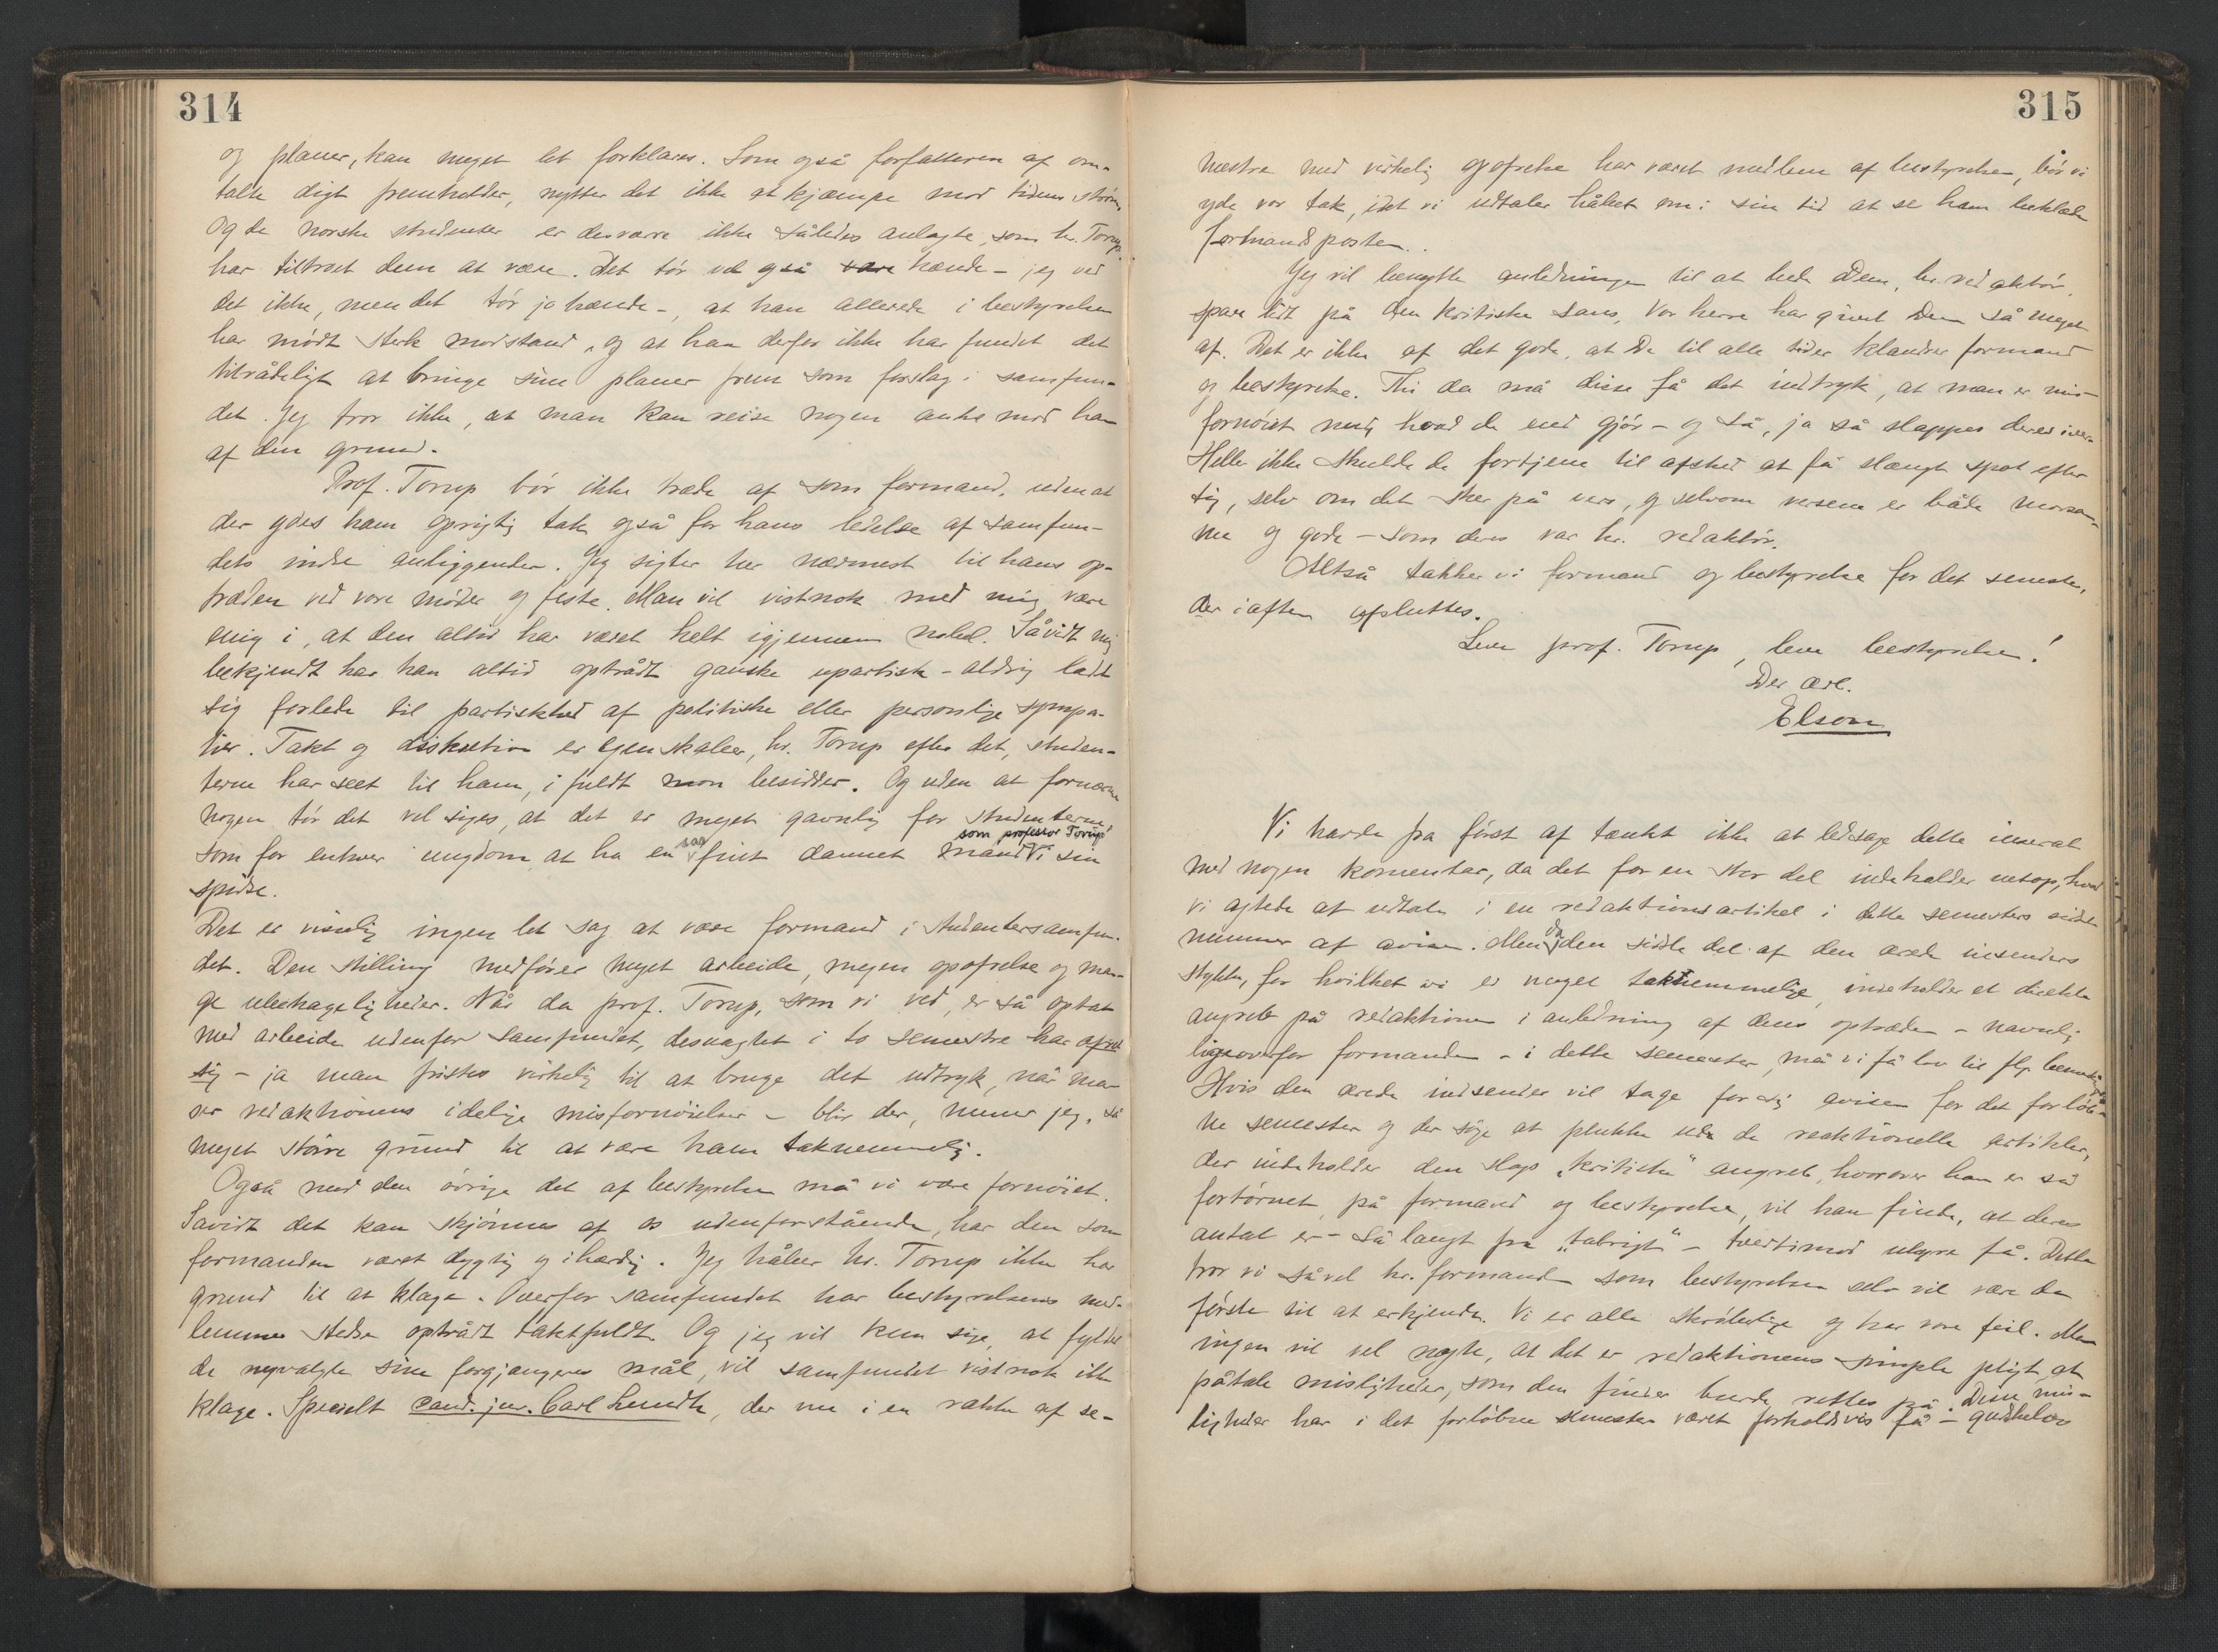 314
og planer, kan meget let forklares. Som også forfatteren af om-
talte digt fremholder, nytter det ikke at kjæmpe mod tidens strøm.
Og de norske studenter er desværre ikke således anlagte, som hr. Torup
har tiltroet dem at være. Det tør vel også hænde – jeg ved
det ikke, men det tør jo hænde –, at han allerede i bestyrelsen
har mødt sterk modstand, og at han derfor ikke har fundet det
tilrådeligt at bringe sine planer frem som forslag i samfun-
det. Jeg tror ikke, at man kan reise nogen anke mod ham
af den grund.
Prof. Torup bør ikke træde af som formand, uden at
der ydes ham oprigtig tak også for hans ledelse af samfun-
dets indre anliggender. Jeg sigter her nærmest til hans op-
træden ved vore møder og feste. Man vil vistnok med mig være
enig i, at den altid har været helt igjennem nobel. Såvidt mig
bekjendt har han altid optrådt ganske upartisk – aldrig ladt
sig forlede til partiskhed af politiske eller personlige sympa-
tier. Takt og diskretion er egenskaber, hr. Torup efter det, studen-
terne har seet til ham, i fuldt mon besidder. Og uden at fornærme
nogen tør det vel siges, at det er meget gavnlig for studenterne,
som for enhver ungdom, at ha en saa fint dannet mand som professor Torup i sin
spidse.
Det er visselig ingen let sag at være formand i Studentersamfun-
det. Den stilling medfører meget arbeide, megen opofrelse og man-
ge ubehageligheder. Når da prof. Torup, som vi ved, er så optat
med arbeide udenfor samfundet, desuagtet i to semestre har ofret
sig – ja man fristes virkelig til at bruge det udtryk, når man
ser redaktionens idelige misfornøielser – blir der, mener jeg, så
meget større grund til at være ham taknemmelig.
Også med den øvrige del af bestyrelsen må vi være fornøiet.
Såvidt det kan skjønnes af os udenforstående, har den som
formanden været dygtig og ihærdig. Jeg håber hr. Torup ikke har
grund til at klage. Overfor samfundet har bestyrelsens med-
lemmer stedse optrådt taktfuldt. Og jeg vil kun sige, at fylder
de nyvalgte sine forgjængeres mål, vil samfundet vistnok ikke
klage. Specielt cand. jur. Carl Lundh, der nu i en række af se-
315
mestre med virkelig opofrelse har været medlem af bestyrelsen, bør vi
yde vor tak, idet vi udtaler håbet om i sin tid at se ham beklæde
formandsposten.
Jeg vil benytte anledningen til at bede Dem, hr. redaktør,
spare lidt på den kritiske sans, Vor herre har givet Dem så meget
af. Det er ikke af det gode, at De til alle tider klandrer formand
og bestyrelse. Thi da må disse få det indtryk, at man er mis-
fornøiet med, hvad de end gjør – og så, ja så slappes deres iver.
Heller ikke skulde de fortjene til afsked at få slængt spot efter
sig, selv om det sker på vers, og selvom versene er både morsom-
me og gode – som deres var hr. redaktør.
Altså takker vi formand og bestyrelse for det semester,
der iaften afsluttes.
Leve prof. Torup, leve bestyrelsen!
Der ærb.
Elson
Vi havde fra først af tænkt ikke at ledsage dette inserat
med nogen komentar, da det for en stor del indeholder netop, hvad
vi agtede at udtale i en redaktionsartikel i dette semesters sidste
nummer af avisen. Men da den sidste del af den ærede insenders
stykke, for hvilket vi er meget taknemmelige, indeholder et direkte
angreb på redaktionen i anledning af dens optræden – navnlig
ligeoverfor formanden – i dette semester, må vi få lov til flg. bemerkninger:
Hvis den ærede indsender vil tage for sig avisen for det forløb-
ne semester og der søge at plukke ud de redaktionelle artikler,
der indeholder den slags „kritiske" angreb, hvorover han er så
fortørnet, på formand og bestyrelse, vil han finde, at deres
antal er – så langt fra „talrigt" – tvertimod uhyre få. Dette
tror vi såvel hr. formand som bestyrelsen selv vil være de
første til at erkjende. Vi er alle skrøbelige og har vore feil. Men
ingen vil vel negte, at det er redaktionens simple pligt at
påtale misligheder, som den finder burde rettes på. Disse mis-
ligheder har i det forløbne semester været forholdsvis få – gudskelov